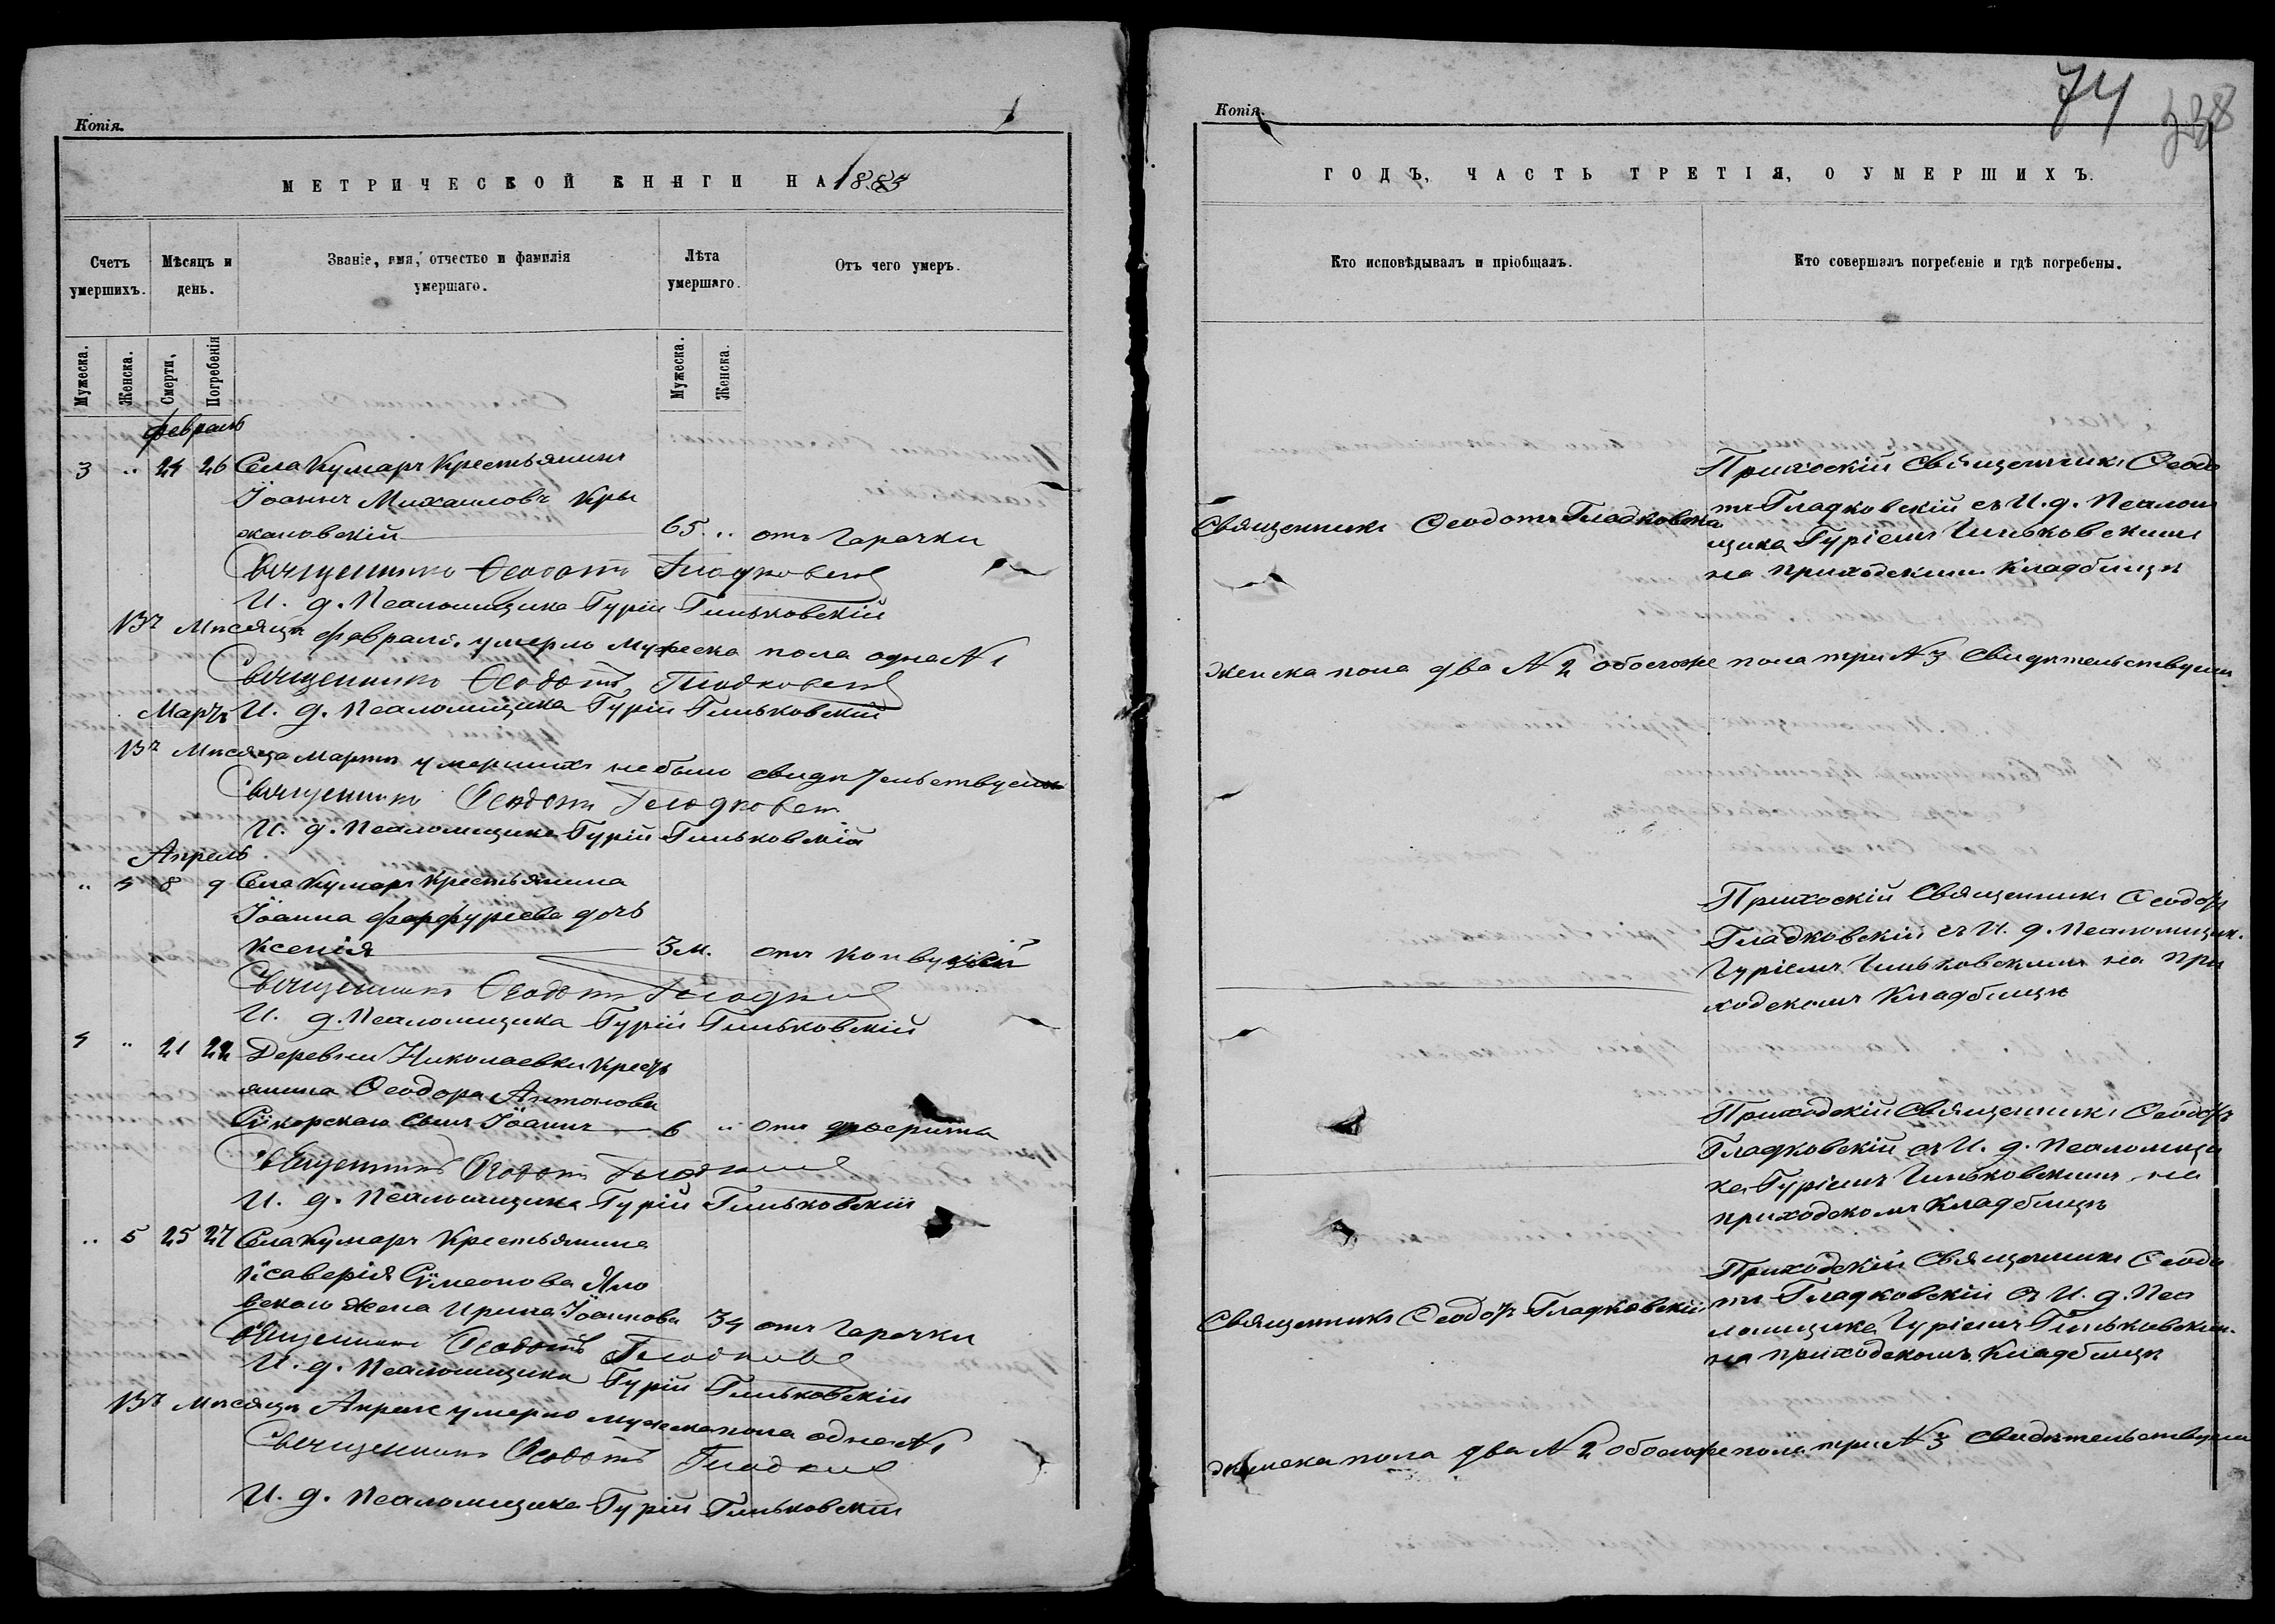 Копія.
МЕТРИЧЕСКОЙ КНИГИ НА 1885
Счетъ умершихъ.
Мѣсяцъ и день.
Званіе, имя, отчество и фамилія умершаго.
Лѣта умершаго.
Отъ чего умеръ.
Мужеска.
Женска.
Смерти,
Погребенія
Мужеска.
Женска.
Февраль
3 " 24 26 Села Кумаръ Крестьянинъ
Іоаннъ Михаиловъ Кры
жановскій 65 " отъ Горячки
Священникъ Ѳеодотъ Гладковскій
И. д. Псаломщика Гурій Гиньковскій
Въ Мѣсяцѣ Февралѣ умерло Мужеска пола одна №1
Священникъ Ѳеодотъ Гладковскій
И. д. Псаломщика Гурій Гиньковскій
Мартъ
Въ Мѣсяцѣ Мартѣ умершихъ небыло свидѣтельствуемъ
Священникъ Ѳеодотъ Гладковск
И. д. Псаломщика Гурій Гиньковскій
Апрель
" 4 8 9 Села Кумаръ Крестьянина
Іоанна Фарфуріева дочь
Ксенія 3 м. отъ Конвульсій
Священникъ Ѳеодотъ Гладков
И. д. Псаломщика Гурій Гиньковскій
4 " 21 22 Деревни Николаевки Кресть
янина Ѳеодора Антонова
Сікорскаго Сынъ Іоаннъ 6 " отъ
Священникъ Ѳеодотъ Гладков
И. д. Псаломщика Гурій Гиньковскій
" 5 25 27 Села Кумаръ Крестьянина
Ксаверія Сѵмеонова Яло
вскаго жена Ирина Іоаннова 34 отъ Горячки
Священникъ Ѳеодотъ Гладковс
И. д. Псаломщика Гурій Гиньковскій
Въ Мѣсяцѣ Апрелѣ умерло мужеска пола одна №1
Священникъ Ѳеодотъ Гладков
И. д. Псаломщика Гурій Гиньковскій
Копія.
74
338
ГОДЪ, ЧАСТЬ ТРЕТІЯ, О УМЕРШИХЪ.
Кто исповѣдывалъ и пріобщалъ.
Кто совершалъ погребеніе и гдѣ погребены.
Священникъ Ѳеодотъ Гладковск
Прихоскій Священникъ Ѳеодо
тъ Гладковскій съ И. д. Псалом
щика Гуріемъ Гиньковскимъ
на приходскимъ Кладбищѣ
Женска пола два №2 обоегоже пола три №3 Свидѣтельствуемъ
Прихоскій Священникъ Ѳеодотъ
Гладковскій съ И. д. Псаломщик.
Гуріемъ Гиньковскимъ на При
ходскомъ Кладбищѣ
Приходскій Священникъ Ѳеодотъ
Гладковскій съ И. д. Псаломщи
ка Гуріемъ Гиньковскимъ на
приходскомъ Кладбищѣ
Священникъ Ѳеодотъ Гладковскій
Приходскій Священникъ Ѳеодо
тъ Гладковскій съ И. д. Пса
ломщика Гуріемъ Гиньковским.
на приходскомъ Кладбищѣ
Женска пола два №2 обоегоже пола три №3 Свидѣтельствуемъ